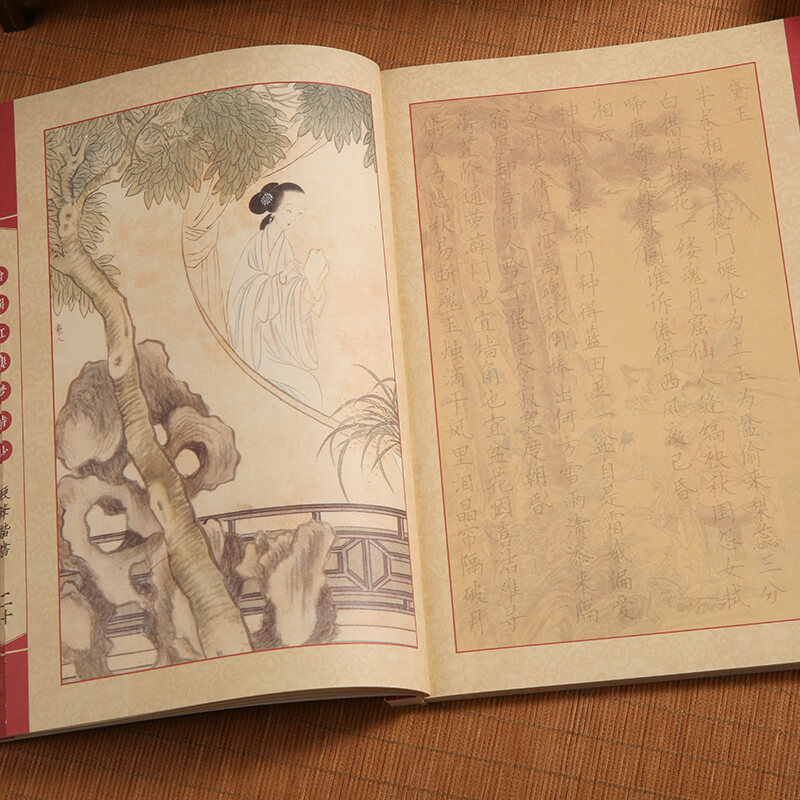 黛玉
半卷湘帘半掩门碾冰为土玉为盆偷来梨蕊三分
白借得梅花一缕魂月窟仙人缝缟袂秋闺怨女拭
啼痕娇羞默默同谁诉倦倚西风夜已昏
湘云
神仙昨日降都门种得蓝田玉一盆自是霜娥偏爱
冷非关倩女亦离魂秋阴捧出何方雪雨渍添来隔
宿痕却喜诗人吟不倦岂令寂寞度朝昏
蘅芷阶通萝薜门也宜墙角也宜盆花因喜洁难寻
偶人为悲秋易断魂玉烛滴干风里泪晶帘隔破月
二十